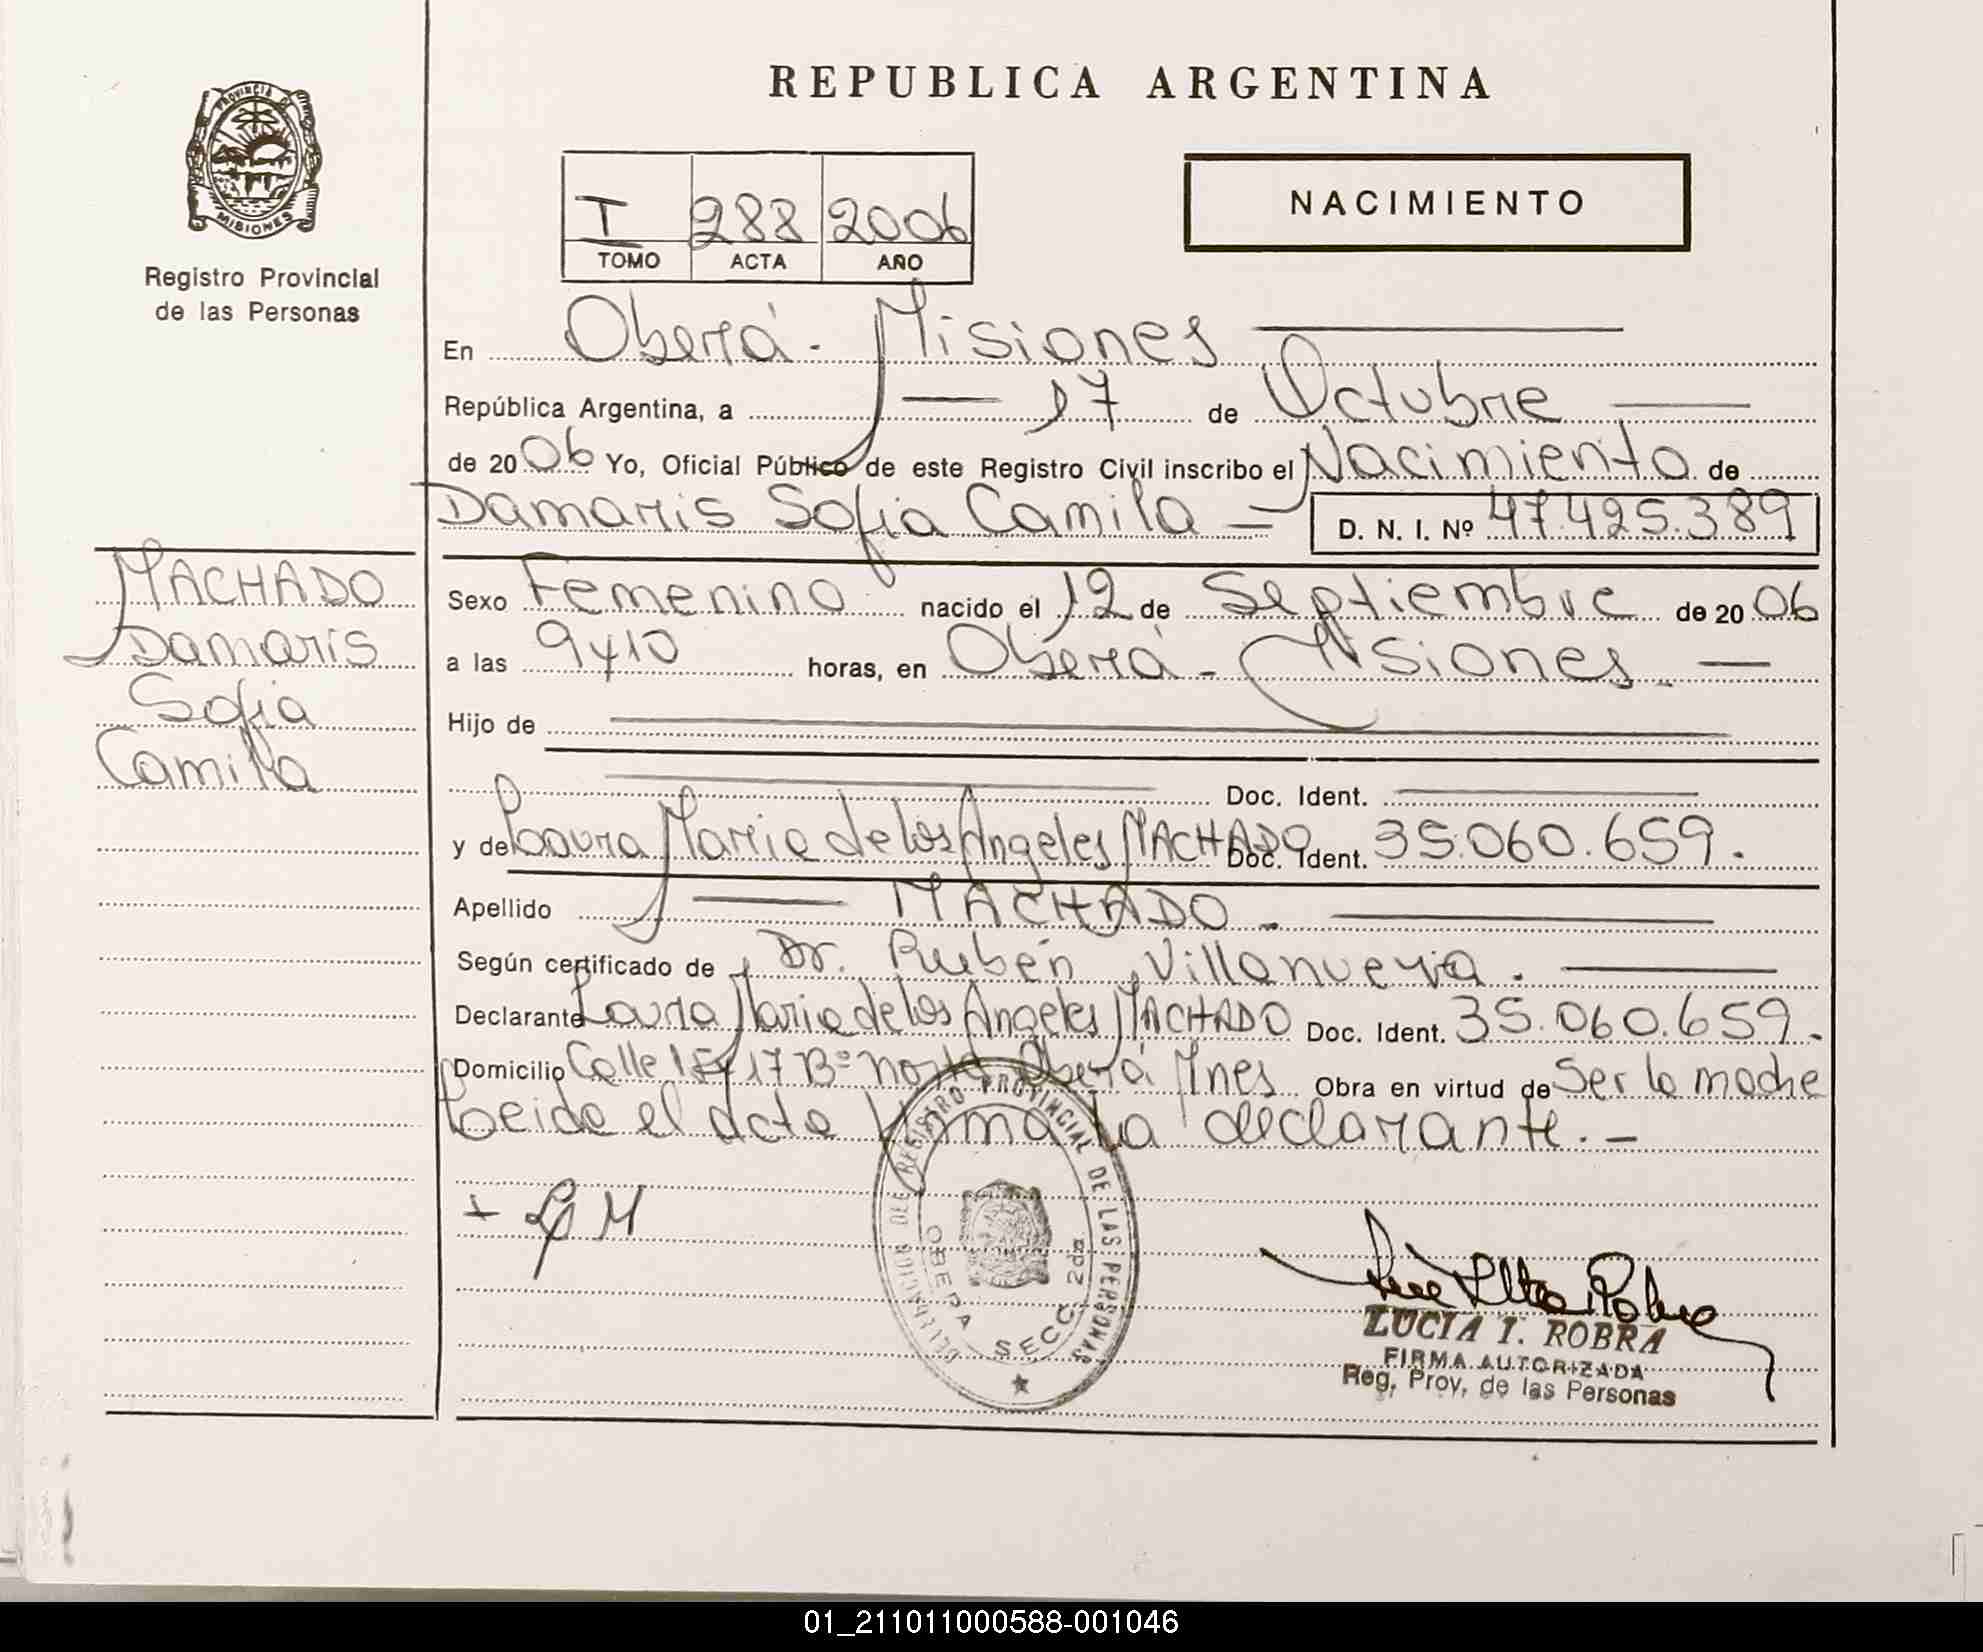 REPUBLICA ARGENTINA
PROVINCIA DE
MISIONES
Registro Provincial
de las Personas
I 288 2006
TOMO ACTA AÑO
NACIMIENTO
En Oberá - Misiones
República Argentina, a 17 de Octubre
de 2006 Yo, Oficial Público de este Registro Civil inscribo el Nacimiento de
Damaris Sofia Camila D. N. I. Nº 47.425.389
MACHADO
Damaris
Sofia
Camila
Sexo Femenino nacido el 12 de Septiembre de 2006
a las 9 y 10 horas, en Oberá - Misiones.
Hijo de
Doc. Ident.
y de Laura Maria de los Angeles MACHADO Doc. Ident. 35.060.659.
Apellido MACHADO.
Según certificado de Dr. Rubén Villanueva.
Declarante Laura Maria de los Angeles MACHADO Doc. Ident. 35.060.659.
Domicilio Calle 17 Bº norte Oberá Mnes Obra en virtud de Ser la madre
Leida el acta Firma la declarante.-
+ LM
DELEGACION DEL REGISTRO PROVINCIAL DE LAS PERSONAS
OBERA SECC. 2da
LUCIA I. ROBRA
FIRMA AUTORIZADA
Reg. Prov. de las Personas
01_211011000588-001046